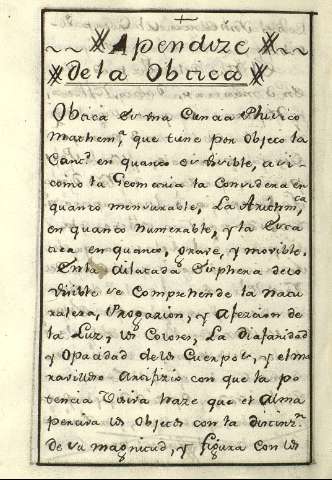 Apendize
De la Obtica
Obtica Es una Ciencia Phisico
Mathem.ᵃ que tiene por Objeto la
Cant.ᵈ en quanto es visible, asi
como la Geometria la Considera en
quanto mensurable, La Arithm.ᶜᵃ
en quanto numerable, y la Esta
tica en quanto, grave, y movible.
En la dilatada Esphera de lo
Visible se Comprehende la Natu
raleza, Propagazion, y Afeczion de
la Luz, los Colores, La diafanidad
y Opacidad de los Cuerpos, y el ma
ravilloso Artifizio con que la po
tencia Visiva haze que el Alma
perciva los Objetos con la distinz.ⁿ
de su magnitud, y figura con los